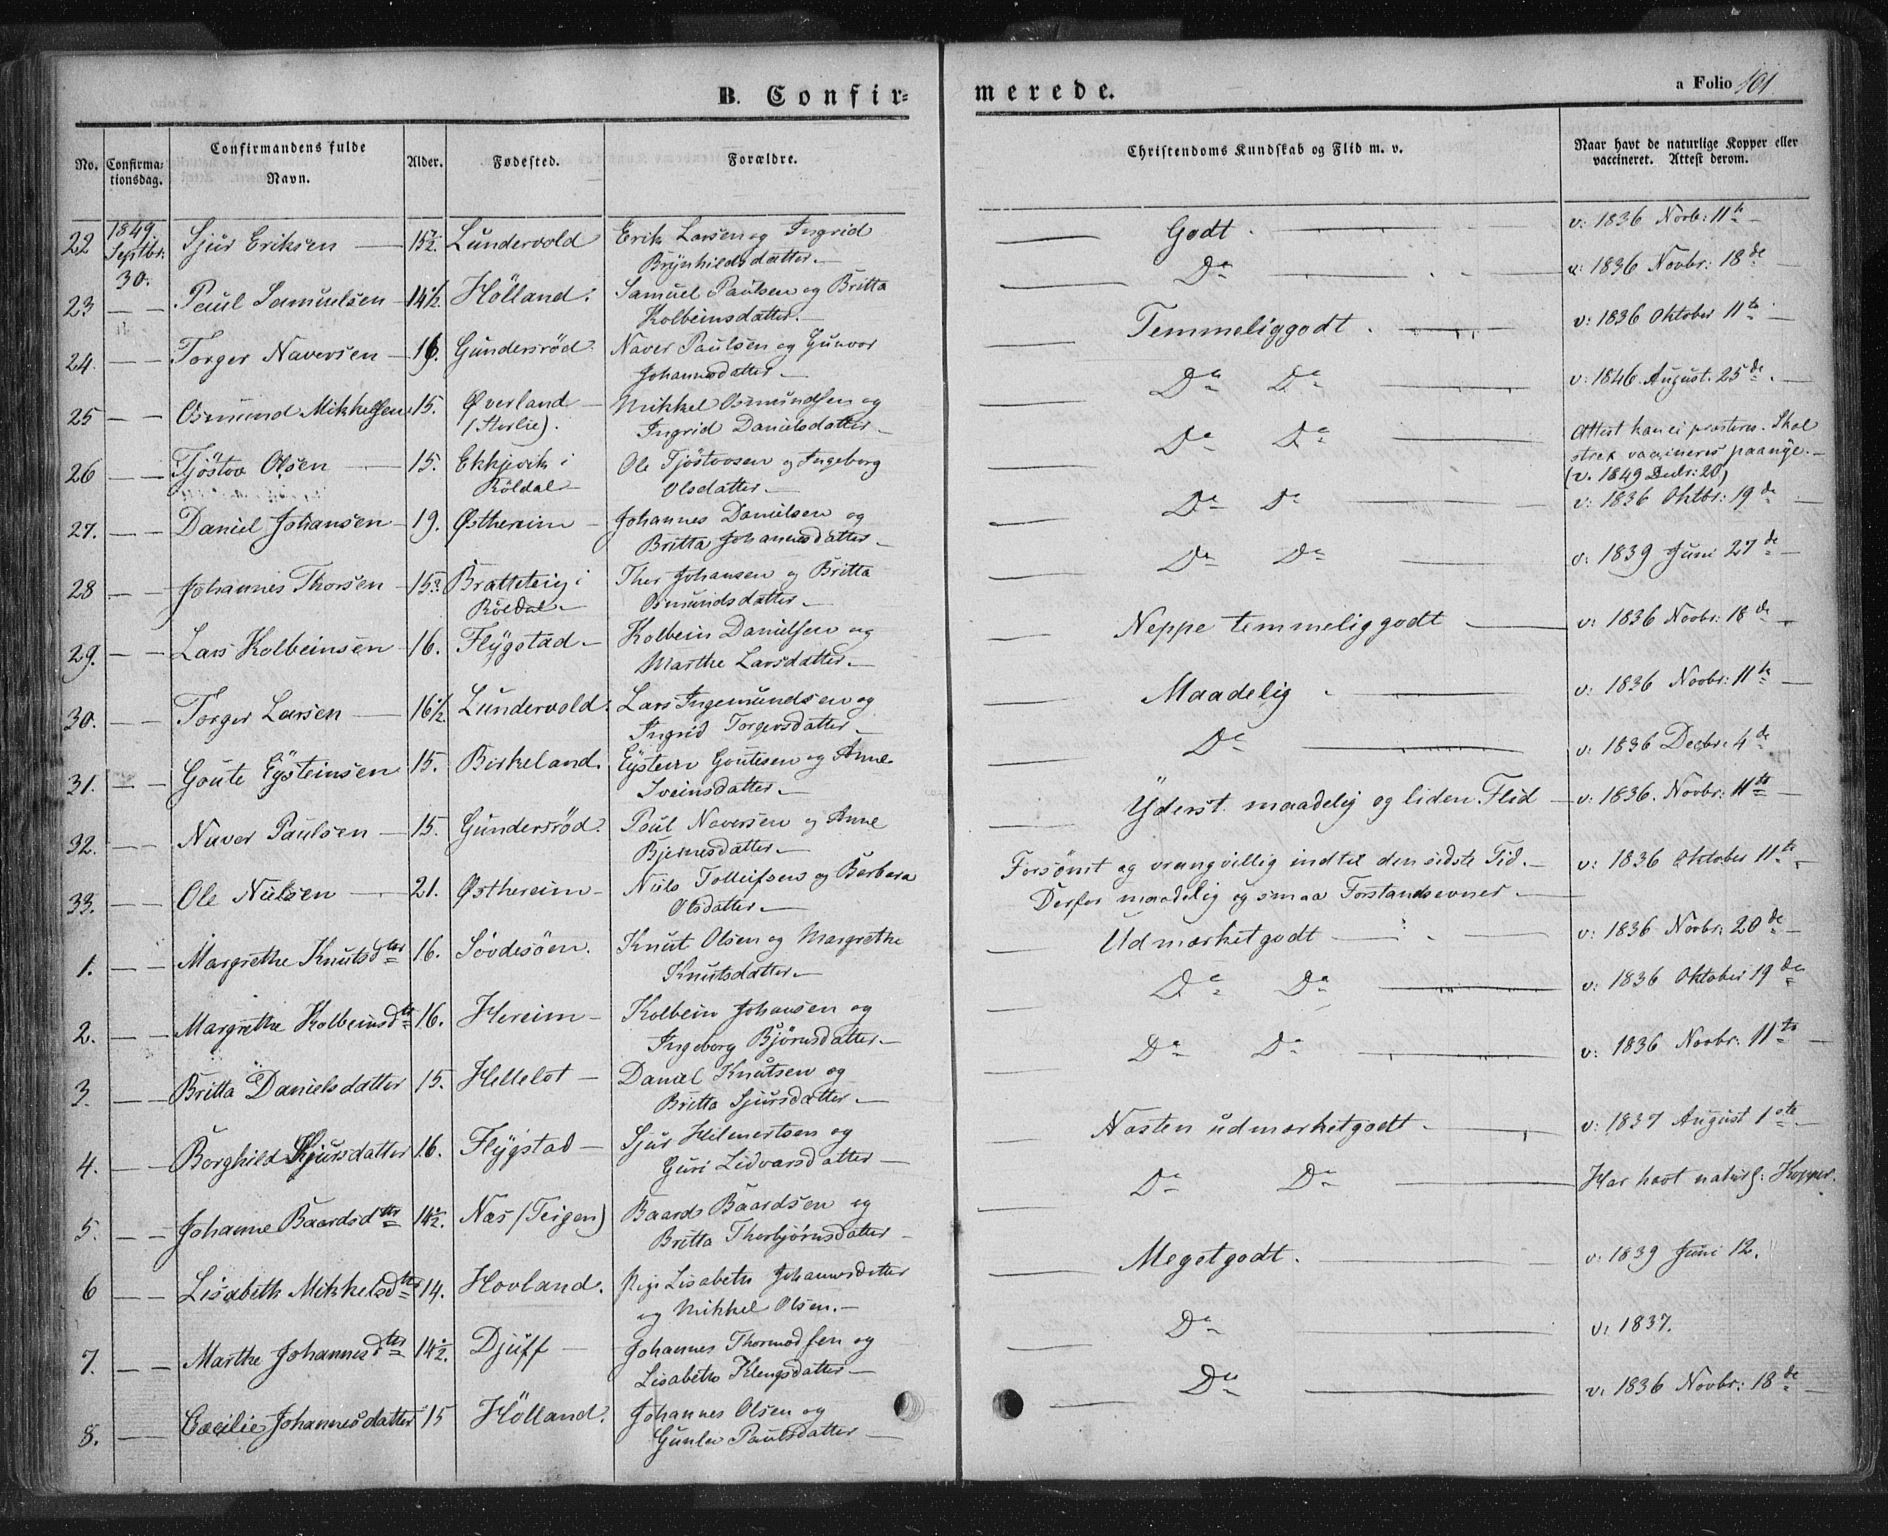 B. Confir=
merede.
a Folio 101
No. Confirma=tionsdag. Confirmandens fulde Navn. Alder. Fødested. Forældre. Christendoms Kundskab og Flid m. v. Naar havt de naturlige Kopper eller vaccineret. Attest derom.
22 1849 Septbr: 30. Sjur Eriksen — 15½. Lundervold Erik Larsen og Ingrid Brynhildsdatter. — Godt. — v: 1836 Novb: 11te —
23 — — Paul Samuelsen — 14½ Hölland. Samuel Paulsen og Britta Kolbeinsdatter. — Do — v: 1836 Novbr: 18de —
24. — — Torger Naversen — 16. Gundersröd. Naver Paulsen og Gunvor Johannsdatter — Temmeliggodt. — v: 1836 Oktober 11te —
25 — — Osmund Mikkelsen 15. Øverland (Sterlie). Mikkel Osmundsen og Ingrid Danielsdatter — Do Do — v: 1846 August. 25de. —
26 — — Tjöstov Olsen — 15. Ekkjevik i Röldal — Ole Tjöstovsen og Ingeborg Olsdatter — Do Do — Attest kan ei præsteres. Skal strax vaccineres paanye. — (v. 1849 Decbr: 20)
27. — — Daniel Johansen — 19. Østhereim — Johannes Danielsen og Britta Johannesdatter — Do Do — v: 1836 Oktbr: 19de —
28 — — Johannes Thorsen — 15½ Bratteteig i Röldal — Thor Johansen og Britta Osmundsdatter — Do Do — v: 1839 Juni 27de —
29. — — Lars Kolbeinsen 16. Flÿgstad — Kolbein Danielsen og Marthe Larsdatter. — Neppe temmeliggodt — v: 1836 Novbr: 18de —
30. — — Torger Larsen — 16½ Lundervold. Lars Ingemundsen og Ingrid Torgersdatter — Maadelig — v: 1836 Novbr: 11te —
31. — — Goute Eÿsteinsen 15. Birkeland. Eÿstein Goutesen og Anne Sveinsdatter — Do — v: 1836 Decbr: 4de
32. — — Naver Paulsen — 15. Gundersröd. Paul Naversen og Anne Bjernesdatter — Yderst maadelig og liden Flid — v: 1836. Novbr: 11te —
33. — — Ole Nielsen — 21. Østhereim — Niels Tolleifsen og Barbara Olsdatter — Forsömt og vrangvillig indtil den sidste Tid. — Derfor maadelig og smaa Forstandsevner — v: 1836 Oktober 11te —
1. — — Margrethe Knutsdter 16. Sövdesöen. Knut Olsen og Margrethe Knutsdatter — Udmærketgodt — v: 1836 Novbr: 20de —
2. — — Margrethe Kolbeinsdtr 16. Hereim — Kolbein Johansen og Ingeborg Björnsdatter — Do Do — v: 1836 Oktober 19de
3. — — Britta Danielsdatter 15. Hellelot — Daniel Knutsen og Britta Sjursdatter — Do Do — v: 1836 Novbr: 11te —
4. — — Borghild Sjursdatter 16. Flÿgstad — Sjur Helmertsen og Guri Lidvarsdatter — Næsten udmærketgodt. — v: 1837 August 1ste. —
5. — — Johanne Baardsdtr 14½. Næs (Teigen) Baard Baardsen og Britta Thorbjörnsdatter — Do Do — Har havt naturl: Kopper.
6 — — Lisabeth Mikkelsdtr 14. Hovland. Pige Lisabeth Johannesdatter og Mikkel Olsen. — Megetgodt. — v: 1839 Juni 12.
7. — — Marthe Johannesdtr 14½. Djuff — Johannes Thormodsen og Lisabeth Klengsdatter — Do — v: 1837.
8. — — Cæcilie Johannesdatter 15 Hölland. Johannes Olsen og Gunla Paulsdatter — Do — v: 1836 Novbr: 18de —